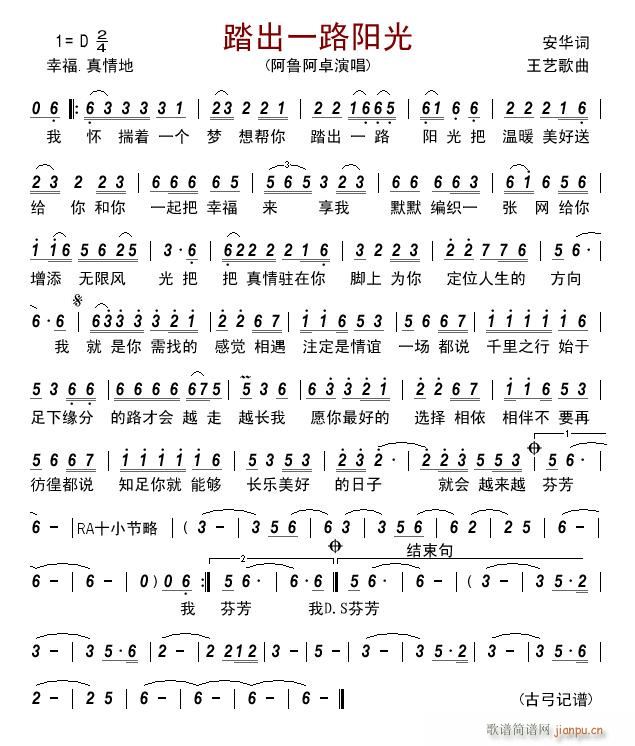 踏出一路阳光
1=D 2/4
安华词
幸福.真情地
(阿鲁阿卓演唱)
王艺歌曲
0 6 ‖: 6 3 3 3 3 1 | 2 3 2 2 1 | 2 2 1 6 6 5 | 6 1 6 6 | 2 2 3 5 5 3 |
我 怀 揣着 一个 梦 想帮你 踏出 一 路 阳 光把 温暖 美好送
2 3 2 2 3 | 6 6 6 6 5 | 5 6 5 3 2 3 | 6 6 5 6 1 | 6 6 6 5 |
给 你 和你 一起把 幸福 来 享我 默默 编织一 张 网 给你
1 1 6 5 6 2 5 | 3 · 6 | 6 2 2 2 2 1 | 2 3 2 3 | 2 2 1 7 7 6 | 5 6 · |
增添 无限风 光 把 把 真情驻在你 脚上 为你 定位人生的 方向
6 · 6 | 6 3 3 3 3 2 1 | 2 2 6 7 | 1 1 6 5 3 | 5 5 6 7 | 1 1 1 6 1 |
我 就 是你 需找的 感觉 相遇 注定是情谊 一场 都说 千里之行 始于
5 3 6 6 | 6 6 6 6 6 7 5 | 5 3 6 | 6 3 3 2 1 | 2 2 6 7 | 1 1 6 5 3 |
足下缘分 的路才会 越 走 越长我 愿你最好的 选择 相依 相伴不 要再
5 6 6 7 | 1 1 1 1 6 | 5 5 5 3 | 2 3 2 · | 2 2 3 5 5 3 | 5 6 · |
彷徨都说 知足你就 能够 长乐美好 的日子 就会 越来越 芬芳
6 - | RA十小节略 ( 3 - | 3 5 6 | 6 3 5 6 | 6 2 | 2 5 | 6 - |
结束句
6 - | 6 - | 0 ) 0 6 :‖ 5 6 · | 6 - :‖ 5 6 · | 6 - | ( 3 - | 3 5 · 2 |
我 芬芳 我D.S芬芳
3 - | 3 5 · 6 | 2 - | 2 2 1 2 | 3 - | 3 5 | 6 - | 6 5 · 2 | 3 - |
2 - | 2 5 | 6 - | 6 - | 6 - ‖
(古弓记谱)
歌谱简谱网
jianpu.cn